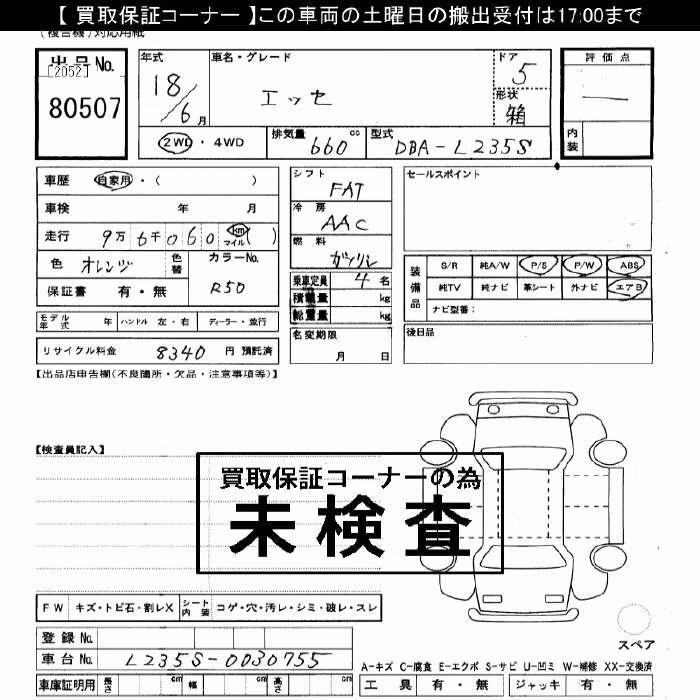 【 買取保証コーナー 】この車両の土曜日の搬出受付は17:00まで
(複合機)対応用紙
出品No.
[2052]
80507
年式
18/6月
車名・グレード
エッセ
ドア
5
形状
箱
評価点
—
内装
2WD・4WD
排気量
660 cc
型式
DBA-L235S
車歴 自家用・( )
車検 年 月
走行 9万6千060 km マイル( )
色 オレンジ 色替
カラーNo.
R50
保証書 有・無
モデル年式 年 ハンドル 左・右 ディーラー・並行
リサイクル料金 8340 円 預託済
シフト
FAT
冷房
AAC
燃料
ガソリン
乗車定員 4名
積載量 kg
総重量 kg
名変期限
月 日
セールスポイント
装備品
S/R 純A/W P/S P/W ABS
純TV 純ナビ 革シート 外ナビ エアB
ナビ型番:
後日品
【出品店申告欄(不良箇所・欠品・注意事項等)】
【検査員記入】
買取保証コーナーの為
未検査
FW キズ・トビ石・割レX シート内装 コゲ・穴・汚レ・シミ・破レ・スレ
登録No.
車台No. L235S-0030755
車庫証明用 長さ cm 幅 cm 高さ cm
スペア
A-キズ C-腐食 E-エクボ S-サビ U-凹ミ W-補修 XX-交換済
工具 有・無 ジャッキ 有・無